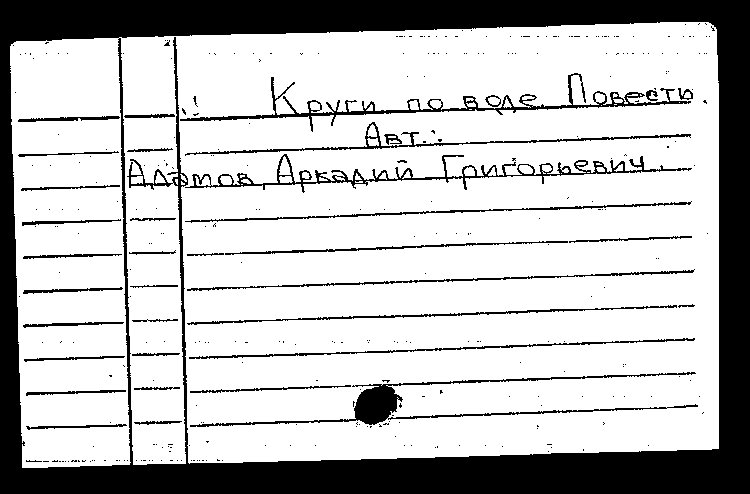 Круги по воде. Повесть.
Авт.:
Адамов, Аркадий Григорьевич.